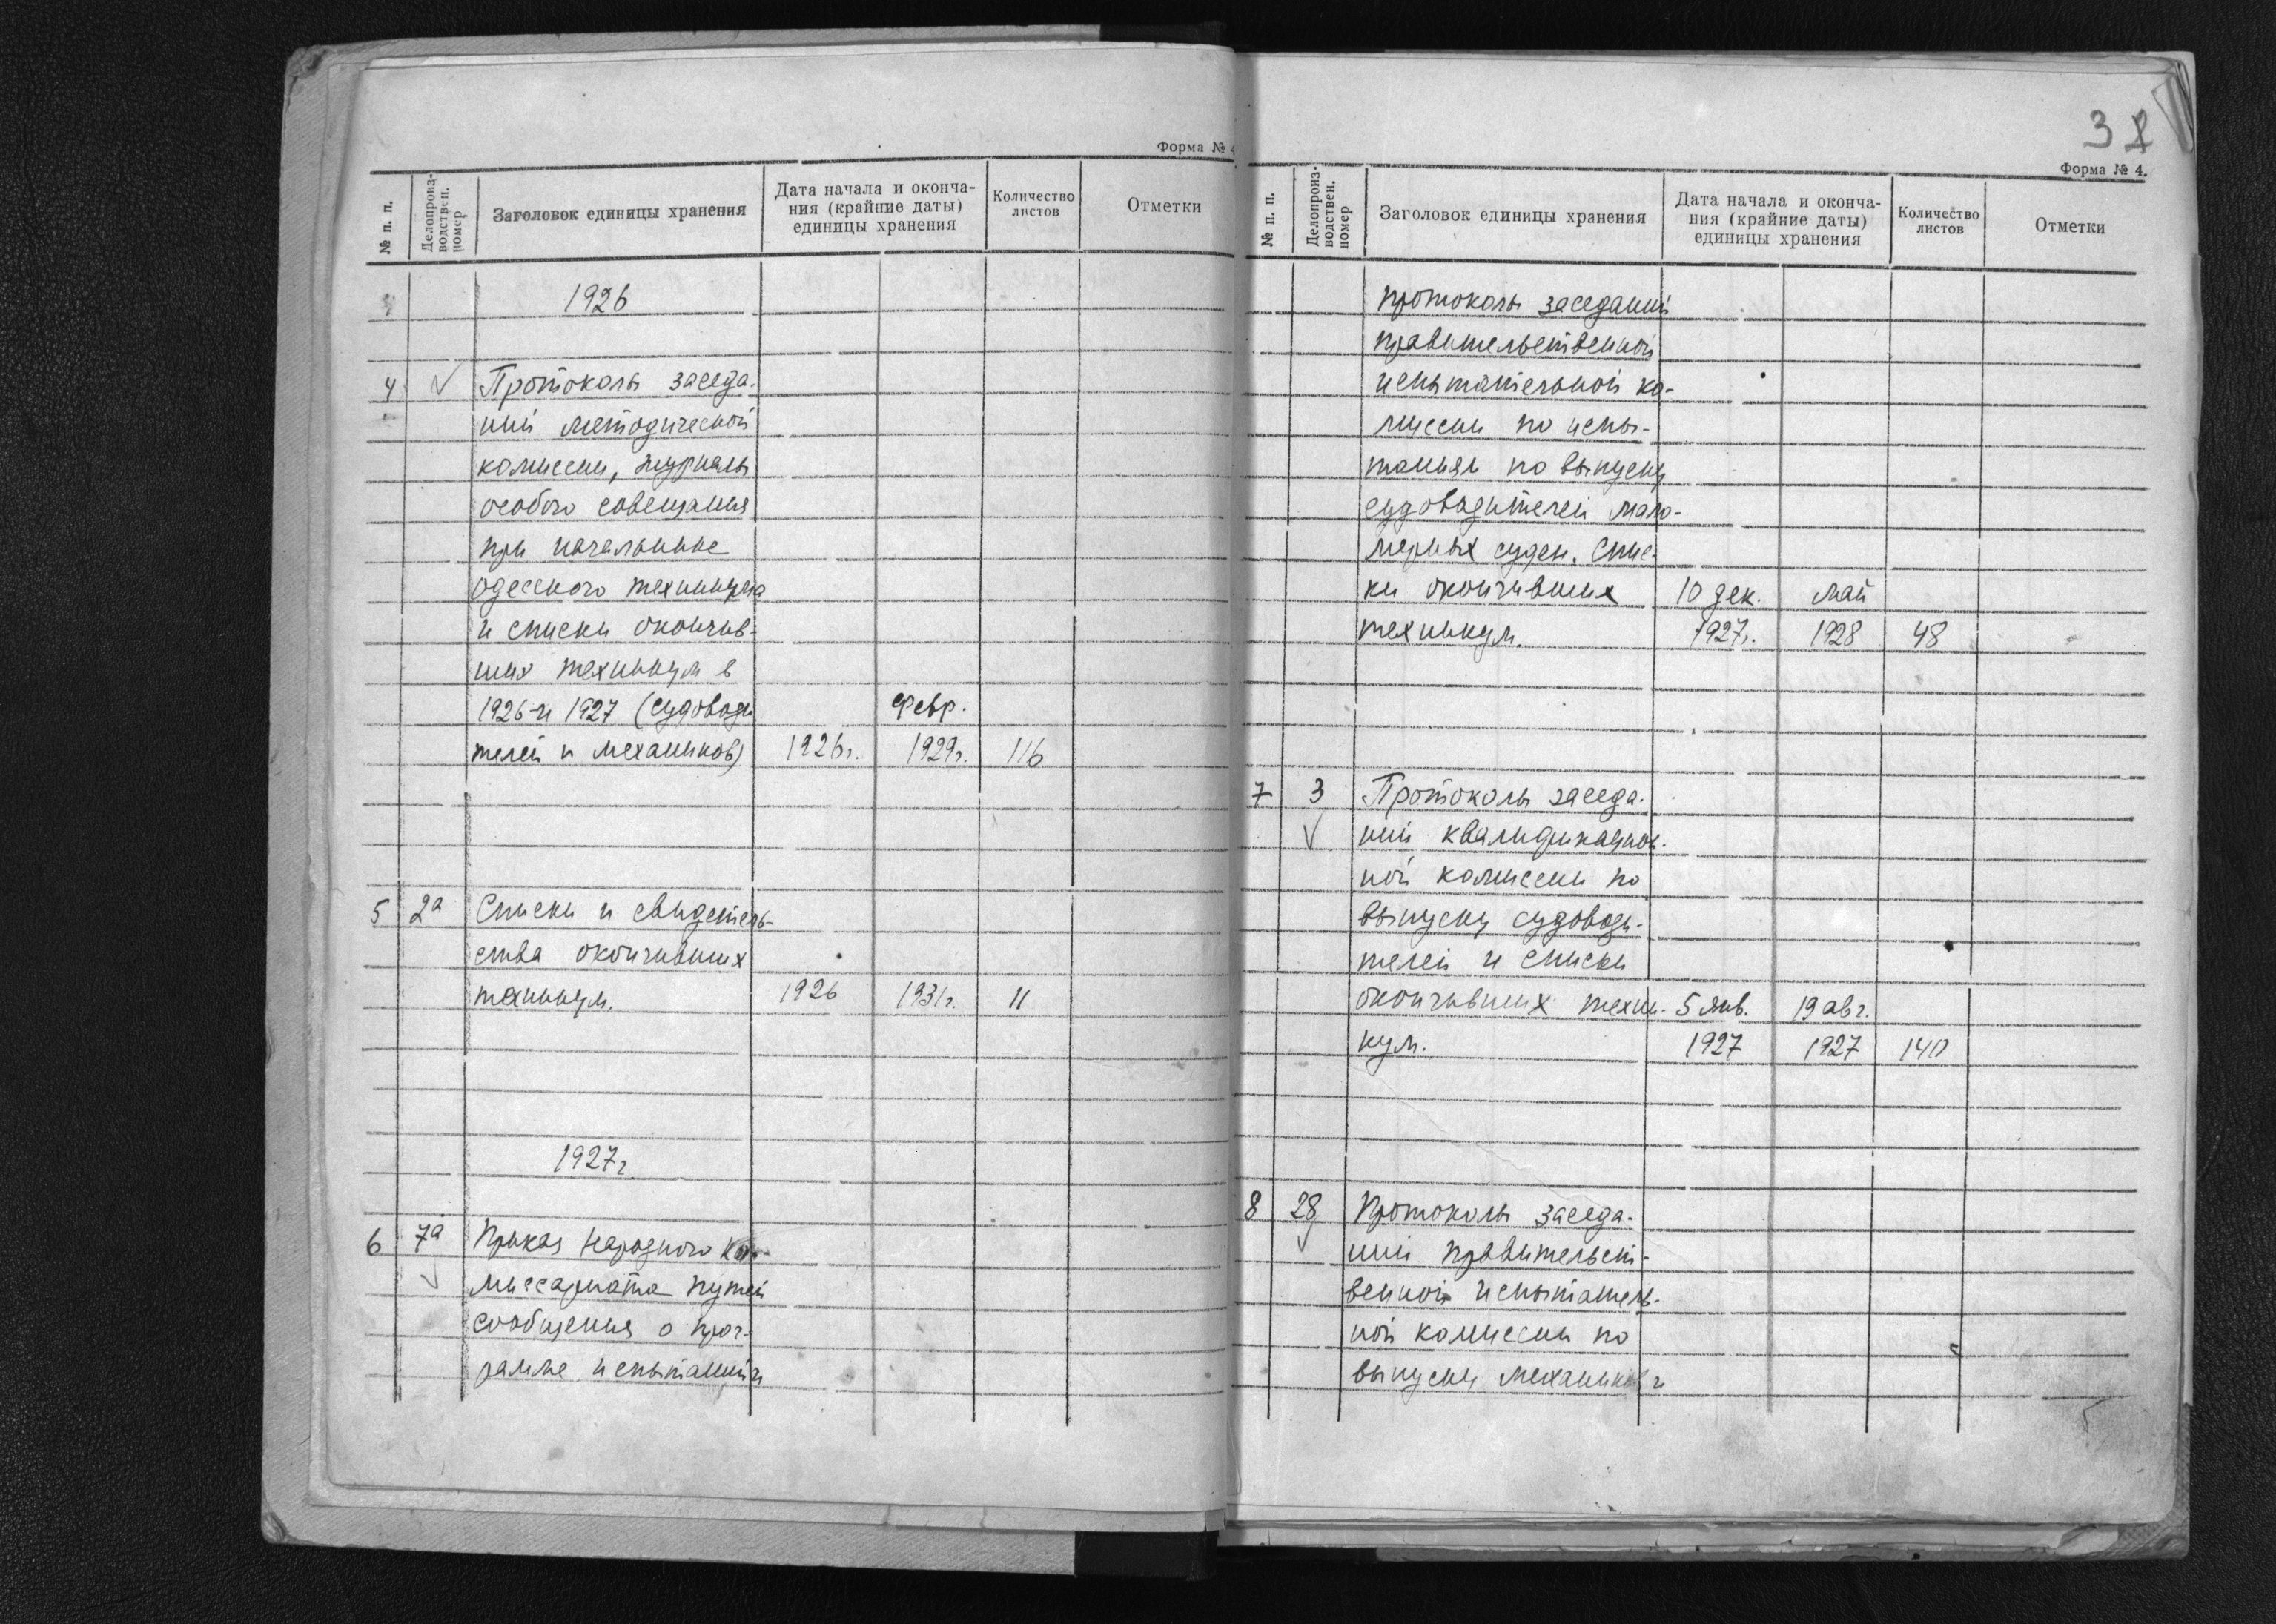 Форма № 4
№ п. п.
Делопроиз-
водствен.
номер
Заголовок единицы хранения
Дата начала и оконча-
ния (крайние даты)
единицы хранения
Количество
листов
Отметки
1926
4 Протоколы заседа-
ний методической
комиссии, журналы
особого совещания
при начальнике
одесского техникума
и списки окончив-
ших техникум в
1926 и 1927 (судоводи
февр.
телей и механиков) 1926г. 1929г. 116
5 2а Списки и свидетель-
ства окончивших
техникум. 1926 1931г. 11
1927г
6 7а Приказ Народного Ко-
миссариата путей
сообщения о прог-
рамме испытаний и
3
Форма № 4.
№ п. п.
Делопроиз-
водствен.
номер
Заголовок единицы хранения
Дата начала и оконча-
ния (крайние даты)
единицы хранения
Количество
листов
Отметки
протоколы заседаний
правительственной
испытательной ко-
миссии по испы-
таниям по выпуску
судоводителей мало-
мерных суден. Спис-
ки окончивших 10 дек. май
техникум. 1927г. 1928 48
7 3 Протоколы заседа-
ний квалификацион-
ной комиссии по
выпуску судоводи-
телей и списки
окончивших техни- 5 янв. 19 авг.
кум. 1927 1927 140
8 28 Протоколы заседа-
ний правительст-
венной испытатель-
ной комиссии по
выпуску механиков и